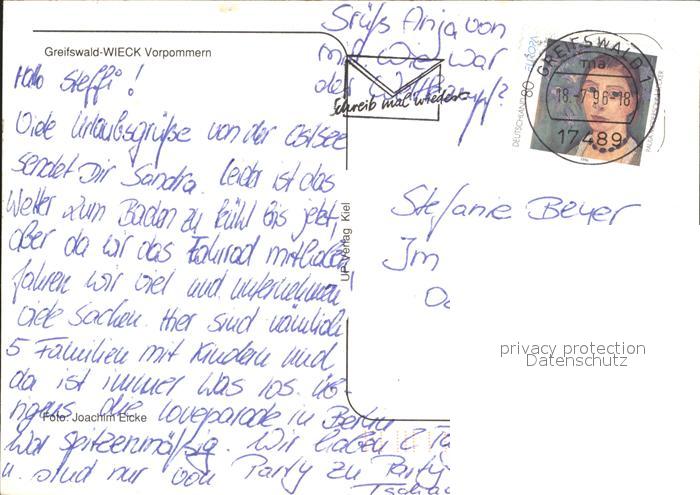 Greifswald-WIECK Vorpommern
Hallo Steffi!
Viele Urlaubsgrüße von der Ostsee
sendet Dir Sandra. Leider ist das
Wetter zum Baden zu kühl bis jetzt,
aber da wir das Fahrrad mithaben
fahren wir viel und unternehmen
viele Sachen. Hier sind nämlich
5 Familien mit Kindern und
da ist immer was los. Üb-
rigens die Loveparade in Berlin
war spitzenmäßig. Wir haben 2 Ta
u. sind nur von Party zu Party
Foto: Joachim Eicke
Grüß Anja von
mir. Wie war
der Wettkampf?
Schreib mal wieder
UP Verlag Kiel
EUROPA
DEUTSCHLAND 80
GREIFSWALD 1
ma
18.-7.96-18
17489
Stefanie Beyer
Im
privacy protection
Datenschutz